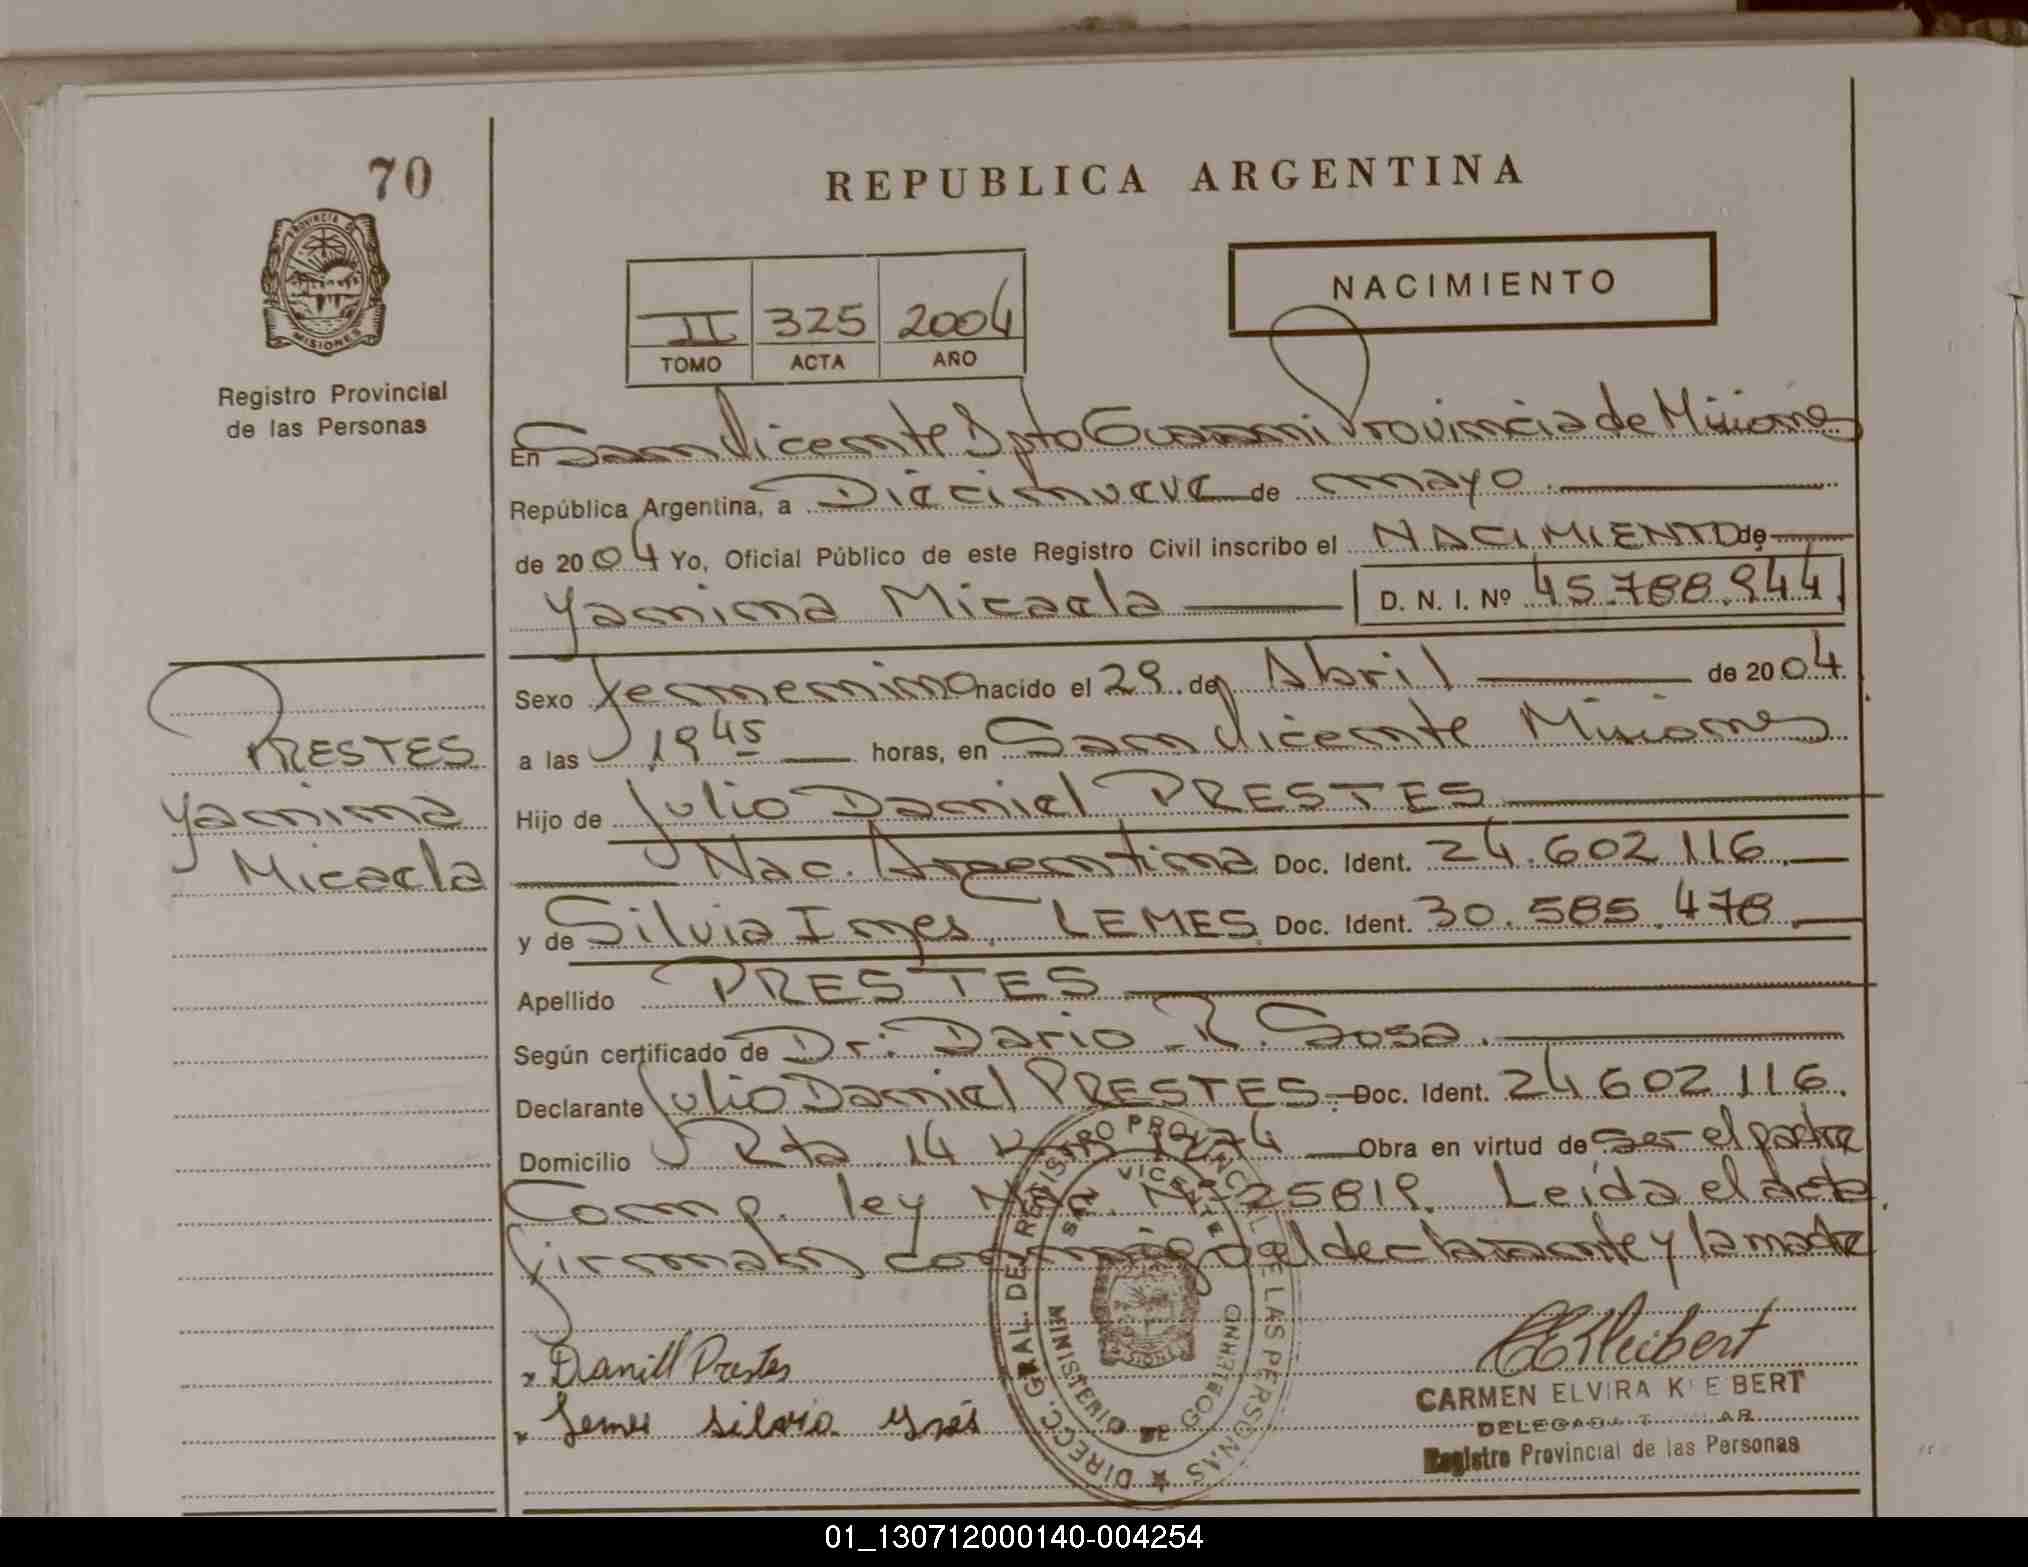 70
PROVINCIA DE
MISIONES
Registro Provincial
de las Personas
REPUBLICA ARGENTINA
II 325 2004
TOMO ACTA AÑO
NACIMIENTO
En San Vicente Dpto Guarani Provincia de Misiones
República Argentina, a Diecinueve de mayo
de 2004 Yo, Oficial Público de este Registro Civil inscribo el NACIMIENTO de
Yanina Micaela D. N. I. Nº 45.788.944
Sexo femenino nacido el 29 de Abril de 2004
a las 19 45 horas, en San Vicente Misiones
PRESTES
Yanina
Micaela
Hijo de Julio Daniel PRESTES
Nac. Argentina Doc. Ident. 24.602 116
y de Silvia Ines LEMES Doc. Ident. 30.585.478
Apellido PRESTES
Según certificado de Dr: Dario R. Sosa.
Declarante Julio Daniel PRESTES Doc. Ident. 24 602 116.
Domicilio Rta 14 Obra en virtud de ser el padre
Comp. ley Nac. Nº 25819. Leída el acta
firman conmigo el declarante y la madre
DIRECC. GRAL. DEL REGISTRO PROVINCIAL DE LAS PERSONAS
SAN VICENTE
MINISTERIO DE GOBIERNO
Daniel Prestes
Lemes Silvia Ynés
CEKleibert
CARMEN ELVIRA K EBERT
DELEGADA T AR
Registro Provincial de las Personas
01_130712000140-004254